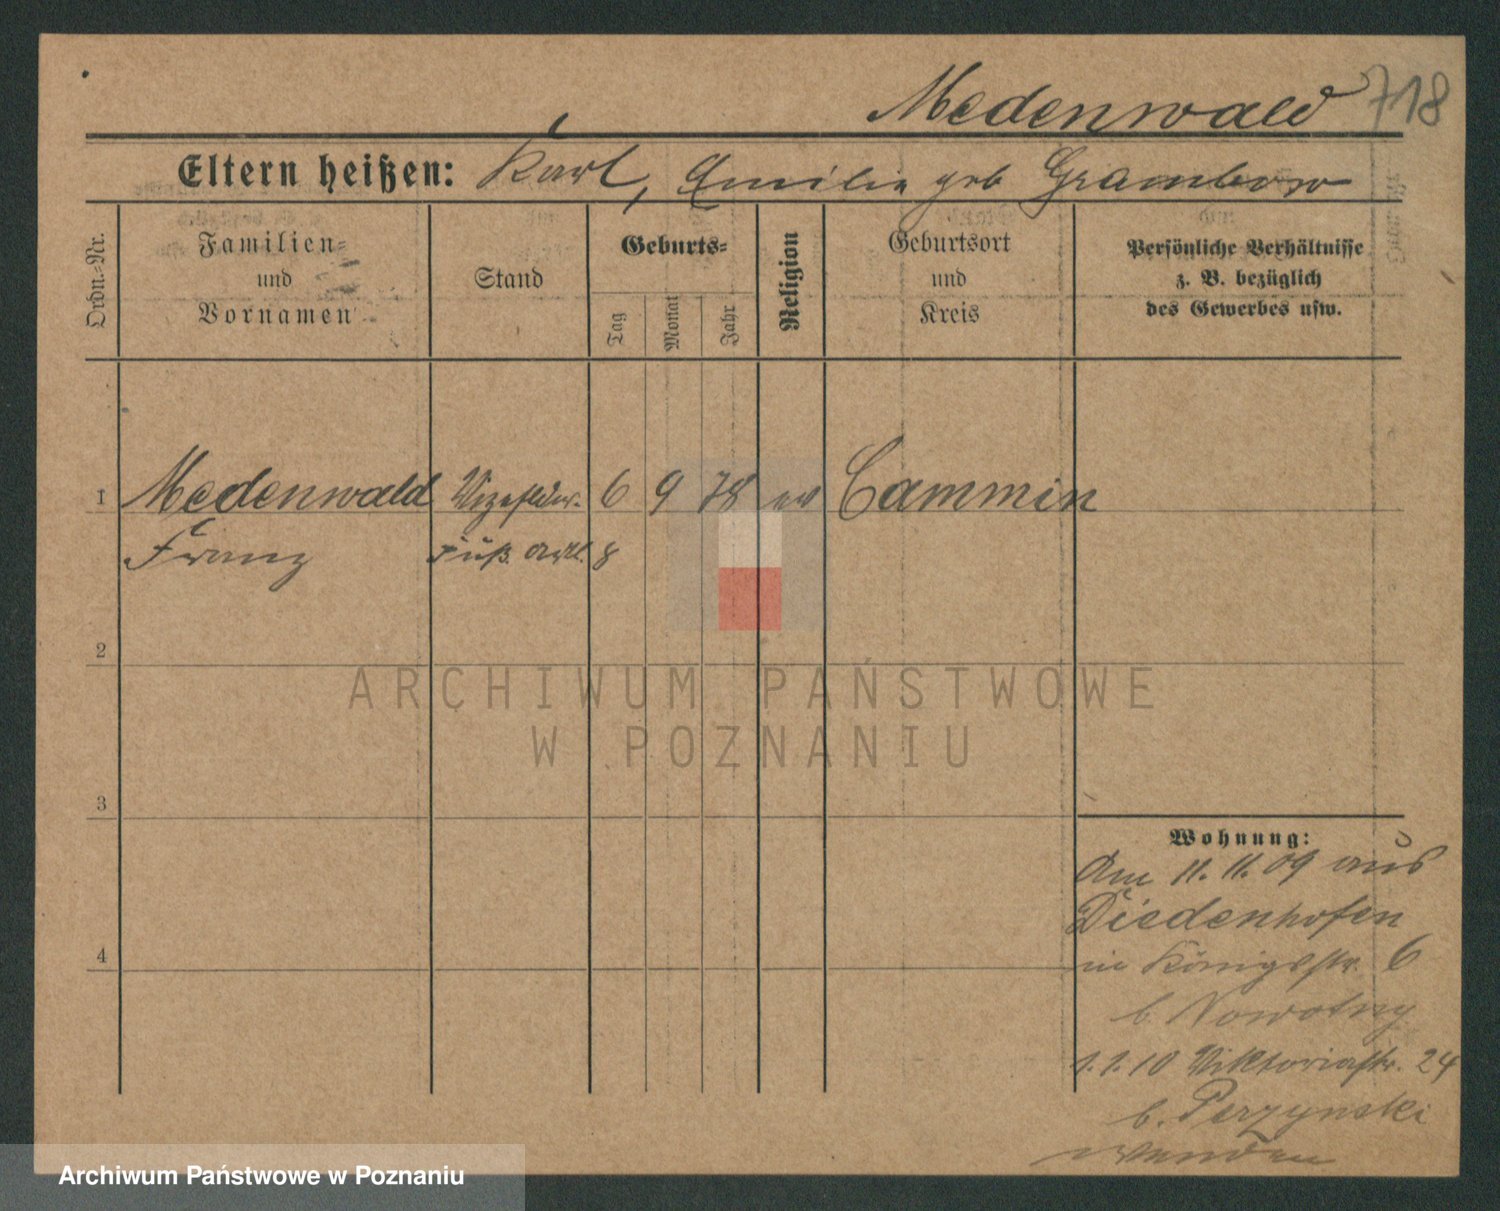 Medenwald 718
Eltern heißen: Karl, Emilie geb Grambow
Ordn.-Nr.
Familien-
und
Vornamen
Stand
Geburts-
Tag
Monat
Jahr
Religion
Geburtsort
und
Kreis
Persönliche Verhältnisse
z. B. bezüglich
des Gewerbes usw.
1 Medenwald Vizefeldw. 6 9 78 ev Cammin
Franz Fuß. Artl. 8
2
3
4
Wohnung:
Am 11.11.09 aus
Diedenhofen
in Königsstr. 6
b. Nowotny
1.1.10 Viktoriastr. 24
b. Perzynski
wenden
ARCHIWUM PAŃSTWOWE
W POZNANIU
Archiwum Państwowe w Poznaniu